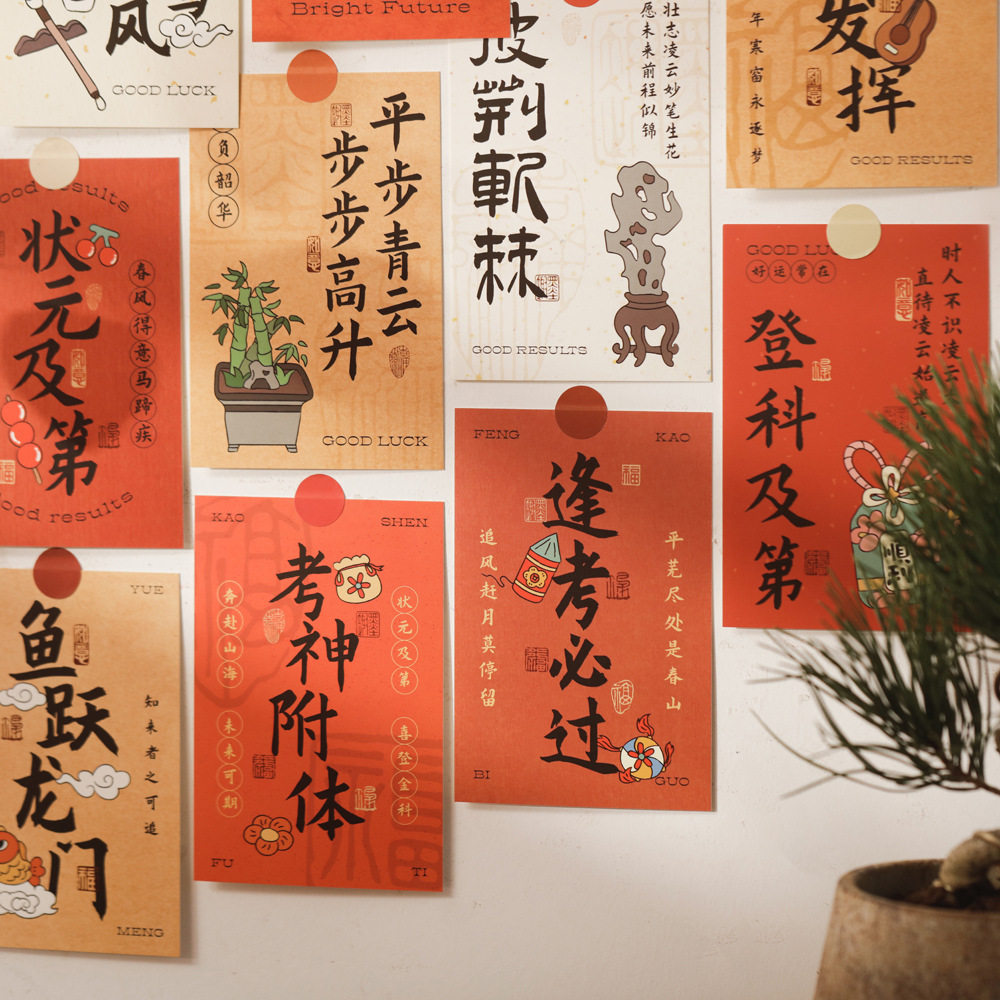 风
GOOD LUCK
Bright Future
披荆斩棘
壮志凌云妙笔生花
愿未来前程似锦
GOOD RESULTS
年寒窗永逐梦
发挥
GOOD RESULTS
good results
状元及第
春风得意马蹄疾
good results
负韶华
平步青云
步步高升
GOOD LUCK
GOOD LU
好运常在
时人不识凌云
直待凌云始
登科及第
顺利
YUE
鱼跃龙门
知来者之可追
MENG
KAO
SHEN
考神附体
奔赴山海
未来可期
状元及第
喜登金科
FU
TI
FENG
KAO
逢考必过
追风赶月莫停留
平芜尽处是春山
BI
GUO